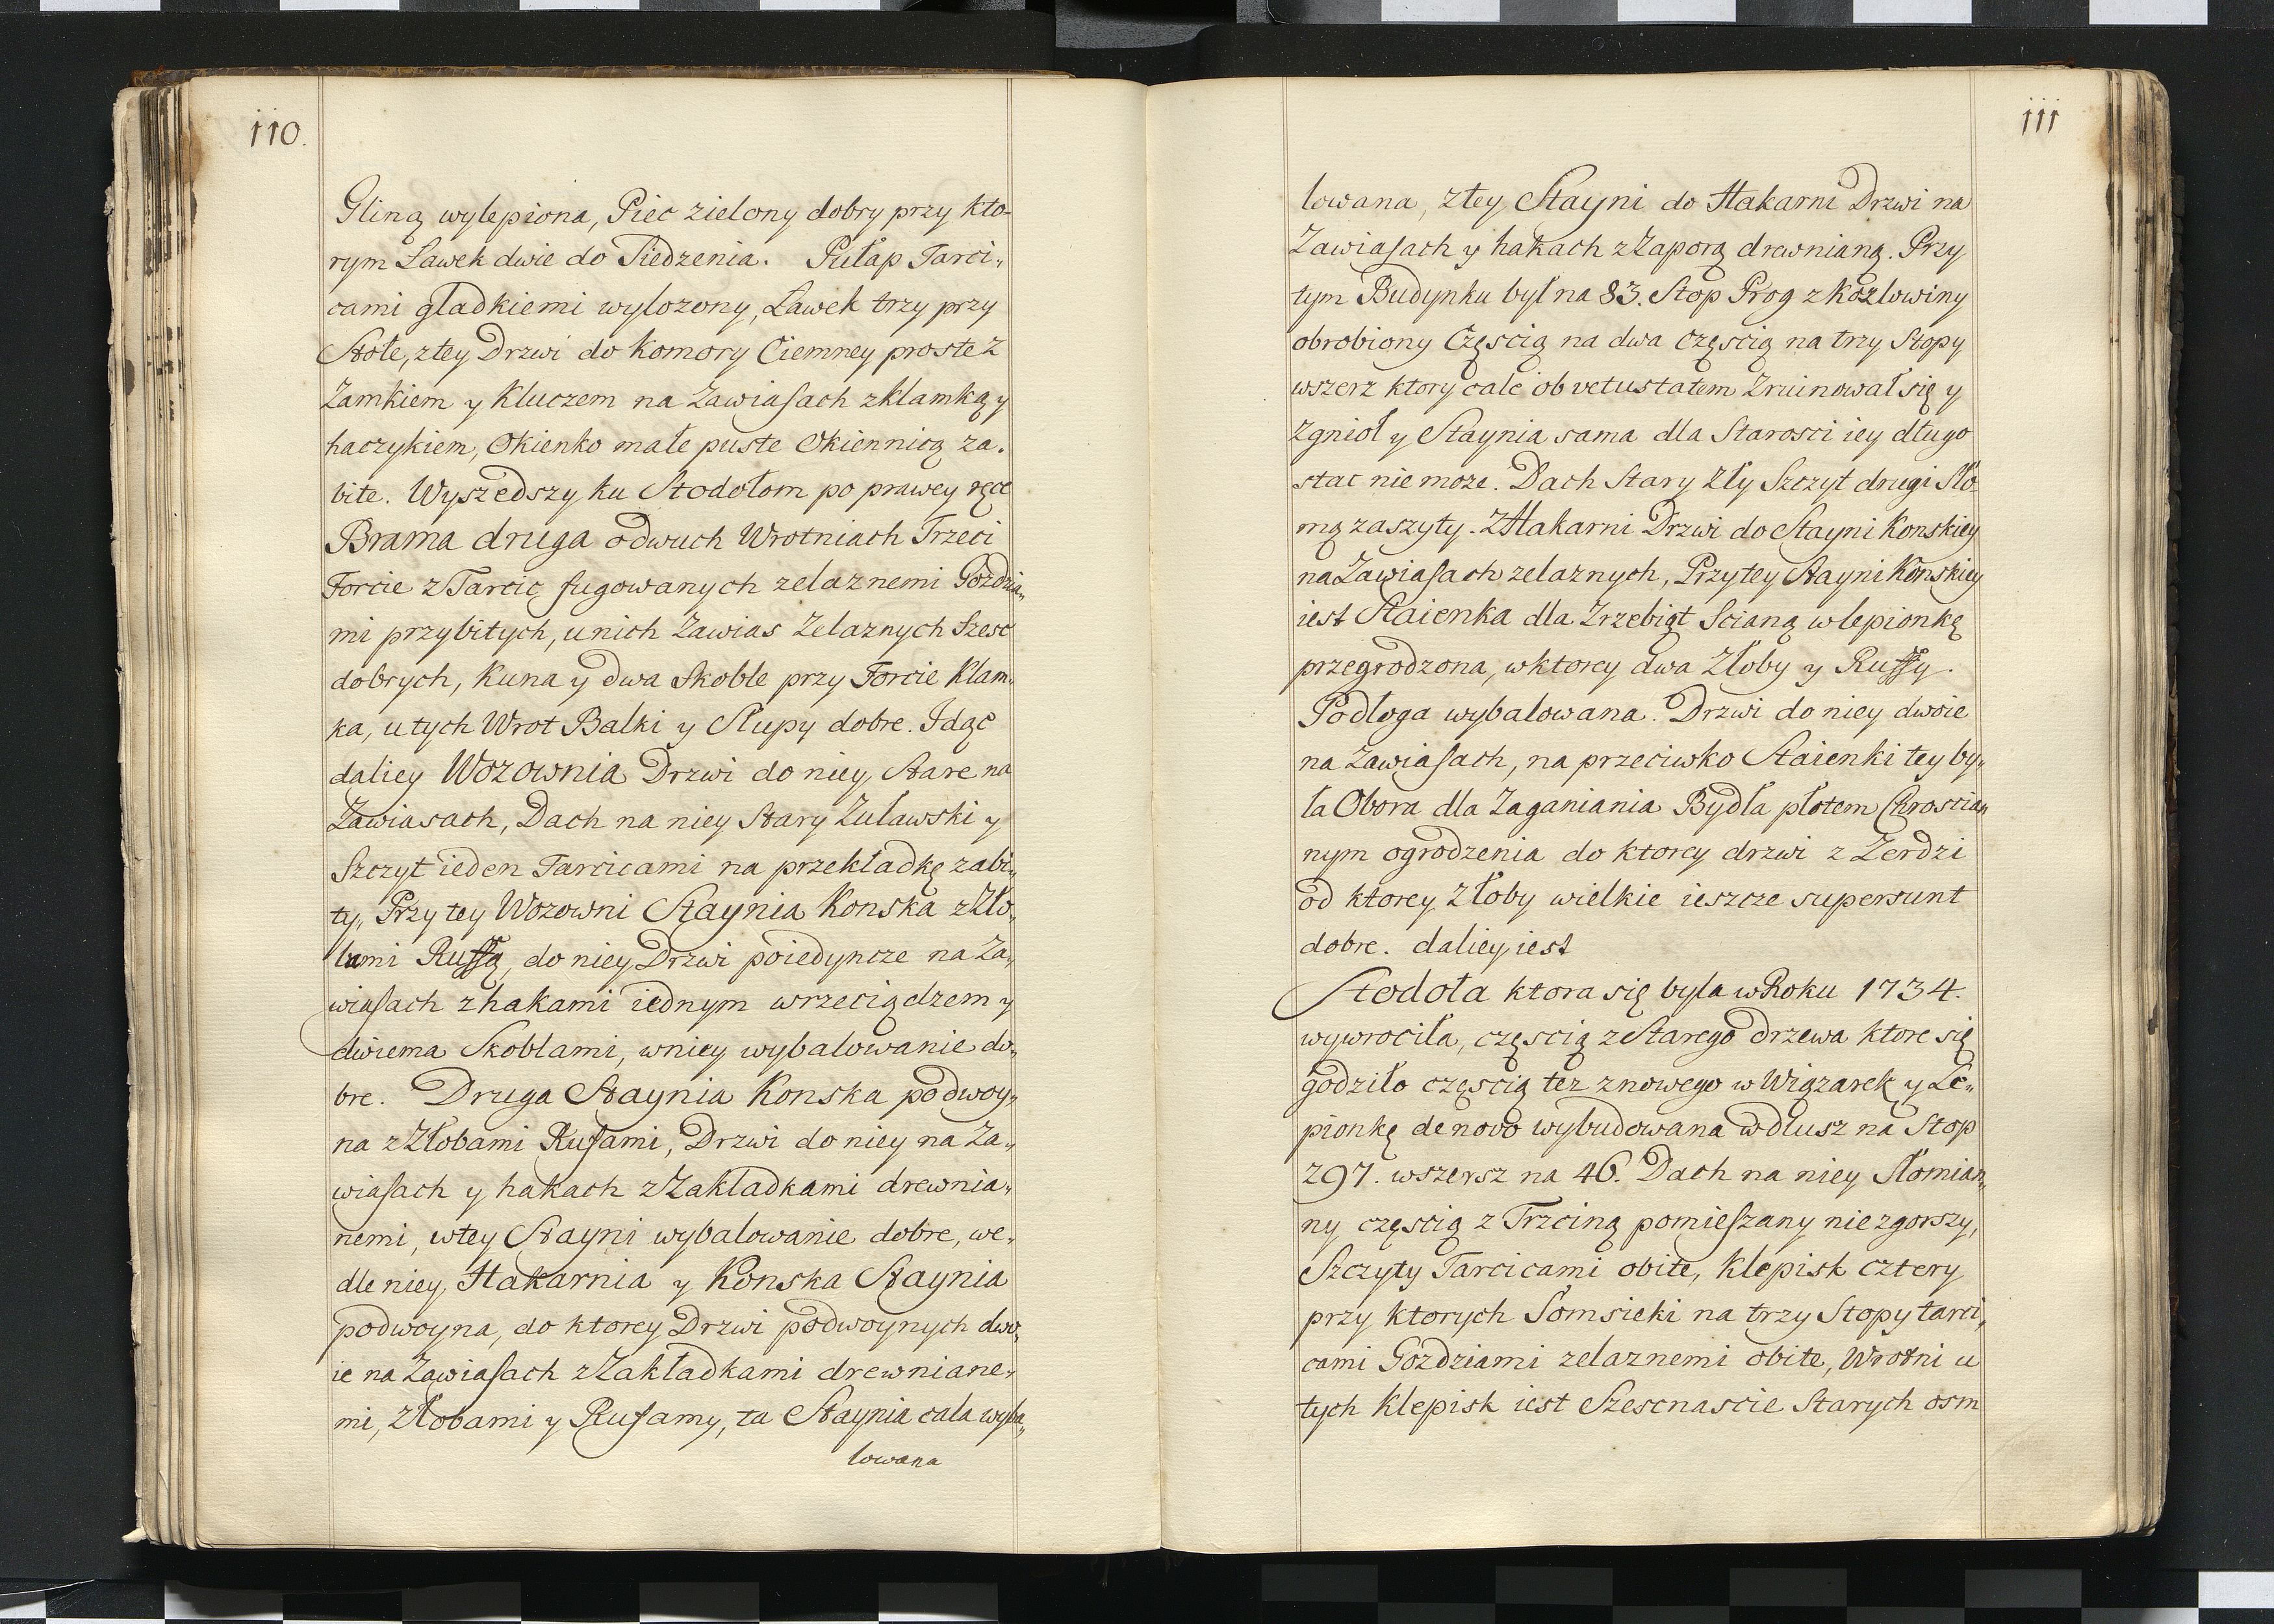 110.
Gliną wylepiona, Piec zielony dobry przy kto-
rym Ławek dwie do Siedzenia. Pułap Tarci„
cami gladkiemi wylozony, Ławek trzy przy
Stole, z tey Drzwi do Komory Ciemney proste z
Zamkiem y Kluczem na Zawiasach z klamką y
haczykiem, Okienko małe puste Okiennicą za.
bite. Wyszedszy ku Stodołom po prawey ręce
Brama druga o dwuch Wrotniach Trzeci
Forcie z Tarcic fugowanych zelaznemi Gozdzia„
mi przybitych, u nich Zawias Zelaznych Szesc
dobrych, Kuna y dwa Skoble przy Forcie Klam„
ka, u tych Wrot Balki y Słupy dobre. Idąc
daliey Wozownia Drzwi do niey Stare na
Zawiasach, Dach na niey Stary Zuławski y
Szczyt ieden Tarcicami na przekładkę zabi„
ty, Przy tey Wozowni Staynia Konska z Zło„
bami Russą, do niey Drzwi poiedyncze na Za„
wiasach z hakami iednym wrzeciądzem y
dwiema Skoblami, w niey wybalowanie do„
bre. Druga Staynia Konska podwoy„
na z Złobami Rusami, Drzwi do niey na Za„
wiasach y hakach z Zakładkami drewnia„
nemi, w tey Stayni wybalowanie dobre, we„
dle niey Hakarnia y Konska Staynia
podwoyna, do ktorey Drzwi podwoynych dwo„
ie na Zawiasach z Zakładkami drewniane„
mi, Złobami y Rusamy, ta Staynia cała wyba„
lowana
111
lowana, z tey Stayni do Hakarni Drzwi na
Zawiasach y hakach z Zaporą drewnianą. Przy
tym Budynku był na 83. Stop Prog z Kozlowiny
obrobiony Częscią na dwa częscią na trzy Stopy
wszerz ktory cale ob vetustatem Zruinował się y
Zgnioł y Staynia sama dla Starosci iey długo
stac nie moze. Dach Stary Zły Szczyt drugi Sło„
mą zaszyty. Z Hakarni Drzwi do Stayni Konskiey
na Zawiasach zelaznych, Przy tey Stayni Konskiey
iest Staienka dla Zrzebiąt Scianą w lepionkę
przegrodzona, w ktorey dwa Złoby y Russy.
Podłoga wybalowana. Drzwi do niey dwoie
na Zawiasach, na przeciwko Staienki tey by„
ła Obora dla Zaganiania Bydła płotem Chroscian„
nym ogrodzenia do ktorey drzwi z Zerdzi
od ktorey Złoby wielkie ieszcze supersunt
dobre. daliey iest
Stodoła ktora się była w Roku 1734.
wywrociła, częscią z Starego drzewa ktore się
godziło częscią tez z nowego w Wiązarek y Le„
pionkę de novo wybudowana w dłusz na Stop
297. wszersz na 46. Dach na niey Słomian„
ny częscią z Trzciną pomieszany niezgorszy,
Szczyty Tarcicami obite, Klepisk cztery
przy ktorych Somsieki na trzy Stopy tarci„
cami Gozdziami zelaznemi obite, Wrotni u
tych Klepisk iest Szesnascie Starych osm